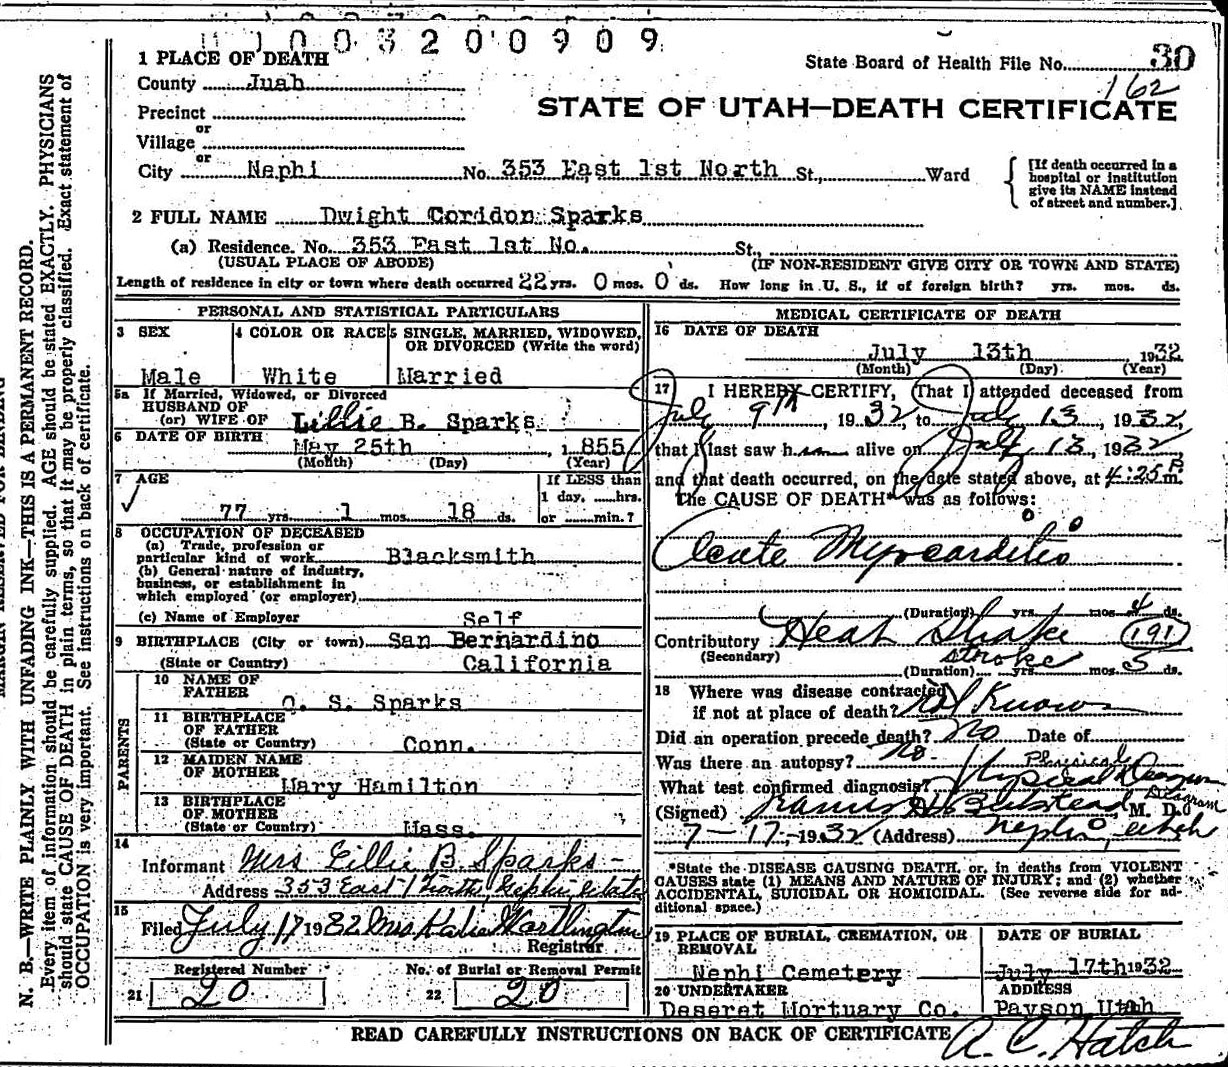 1 0 0 3 2 0 0 9 0 9
1 PLACE OF DEATH
State Board of Health File No. 30
County Juab
162
Precinct
STATE OF UTAH—DEATH CERTIFICATE
or
Village
or
City Nephi No. 353 East 1st North St., Ward
[If death occurred in a hospital or institution give its NAME instead of street and number.]
2 FULL NAME Dwight Coridon Sparks
(a) Residence. No. 353 East 1st No. St.,
(USUAL PLACE OF ABODE) (IF NON-RESIDENT GIVE CITY OR TOWN AND STATE)
Length of residence in city or town where death occurred 22 yrs. 0 mos. 0 ds. How long in U. S., if of foreign birth? yrs. mos. ds.
PERSONAL AND STATISTICAL PARTICULARS
3 SEX 4 COLOR OR RACE 5 SINGLE, MARRIED, WIDOWED,
OR DIVORCED (Write the word)
Male White Married
5a If Married, Widowed, or Divorced
HUSBAND OF
(or) WIFE OF Lillie B. Sparks
6 DATE OF BIRTH May 25th, 1855
(Month) (Day) (Year)
7 AGE If LESS than
1 day, ......hrs.
77 yrs. 1 mos. 18 ds. or ......min.?
8 OCCUPATION OF DECEASED
(a) Trade, profession or
particular kind of work Blacksmith
(b) General nature of industry,
business, or establishment in
which employed (or employer)
(c) Name of Employer Self
9 BIRTHPLACE (City or town) San Bernardino
(State or Country) California
PARENTS
10 NAME OF
FATHER Q. S. Sparks
11 BIRTHPLACE
OF FATHER
(State or Country) Conn.
12 MAIDEN NAME
OF MOTHER
Mary Hamilton
13 BIRTHPLACE
OF MOTHER
(State or Country) Mass.
14
Informant Mrs Lillie B. Sparks
Address 353 East 1 North, Nephi, Utah
15
Filed July 17 1932 Mrs.
Registrar
Registered Number No. of Burial or Removal Permit
21 20 22 20
MEDICAL CERTIFICATE OF DEATH
16 DATE OF DEATH
July 13th 1932
(Month) (Day) (Year)
17 I HEREBY CERTIFY, That I attended deceased from
July 9th, 1932, to July 13, 1932,
that I last saw him alive on July 13, 1932,
and that death occurred, on the date stated above, at 4:25 P m.
The CAUSE OF DEATH* was as follows:
Acute Myocarditis
(Duration) yrs. mos. 4 ds.
Contributory Heat Stroke (191)
(Secondary) stroke
(Duration) yrs. mos. 5 ds.
18 Where was disease contracted
if not at place of death?
Did an operation precede death? No Date of
Was there an autopsy? No.
Physical
What test confirmed diagnosis? Physical
(Signed) M. D.
7-17-, 1932 (Address) Nephi, Utah
*State the DISEASE CAUSING DEATH, or, in deaths from VIOLENT
CAUSES state (1) MEANS AND NATURE OF INJURY; and (2) whether
ACCIDENTAL, SUICIDAL OR HOMICIDAL. (See reverse side for ad-
ditional space.)
19 PLACE OF BURIAL, CREMATION, OR REMOVAL DATE OF BURIAL
Nephi Cemetery July 17th 1932
20 UNDERTAKER ADDRESS
Deseret Mortuary Co. Payson Utah
READ CAREFULLY INSTRUCTIONS ON BACK OF CERTIFICATE
A. C. Hatch
N. B.—WRITE PLAINLY WITH UNFADING INK—THIS IS A PERMANENT RECORD.
Every item of information should be carefully supplied. AGE should be stated EXACTLY. PHYSICIANS
should state CAUSE OF DEATH in plain terms, so that it may be properly classified. Exact statement of
OCCUPATION is very important. See instructions on back of certificate.